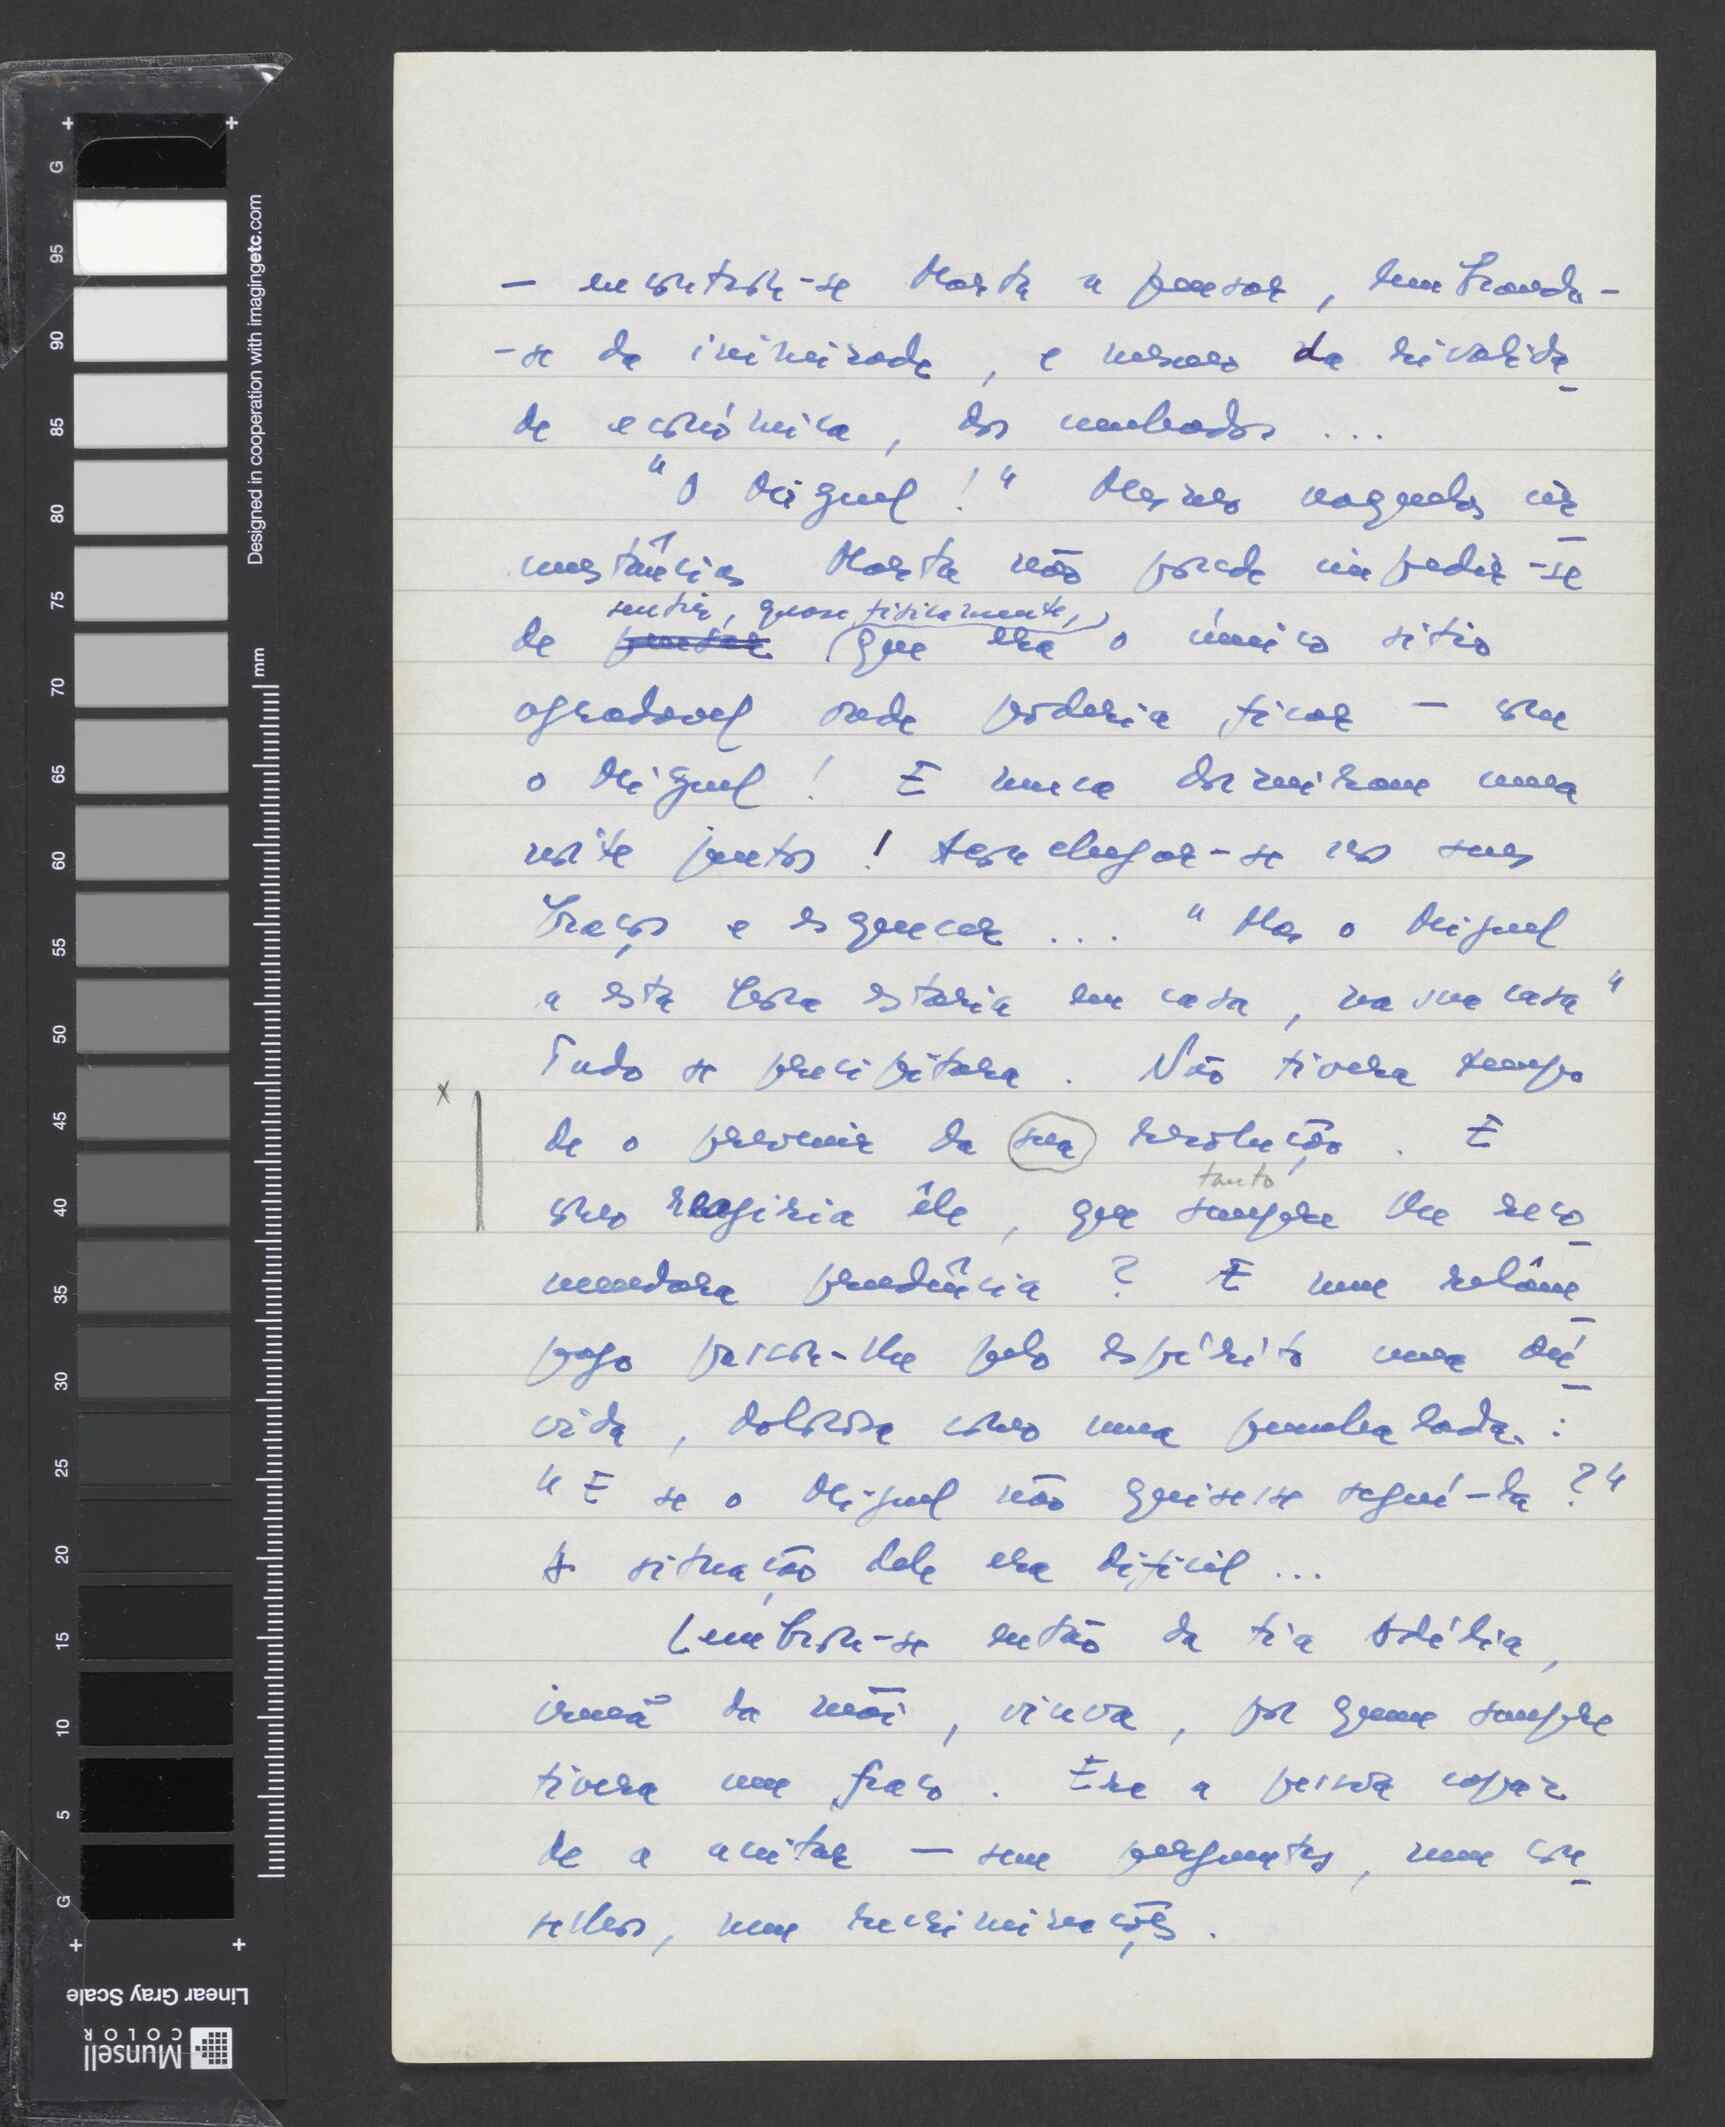 — encontrou-se Marta a pensar, lembrando-
-se da inimizade, e mesmo da rivalida-
de económica, dos cunhados ...
"O Miguel!" Mesmo naquelas cir-
cunstâncias Marta não poude impedir-se
sentir, quase fisicamente,
de pensar que era o único sitio
agradavel onde poderia ficar — com
o Miguel! E nunca dormiram uma
noite juntos! Aconchegar-se nos seus
braços e esquecer ... "Mas o Miguel
a esta hora estaria em casa, na sua casa"
Tudo se precipitara. Não tivera tempo
x
de o prevenir da sua resolução. E
tanto
como reagiria êle, que sempre lhe reco-
mendara prudência? E num relâm-
pago passou-lhe pelo espírito uma dú-
vida, dolorosa como uma punhalada:
"E se o Miguel não quisesse seguí-la?"
A situação dele era dificil ...
Lembrou-se então da tia Adélia,
irmã da mãi, viuva, por quem sempre
tivera um fraco. Era a pessoa capaz
de a aceitar — sem perguntas, nem con-
selhos, nem recriminações.
G
95
90
85
80
75
70
65
60
55
50
45
40
35
30
25
20
15
10
5
G
mm
Designed in cooperation with imagingetc.com
Linear Gray Scale
Munsell
COLOR